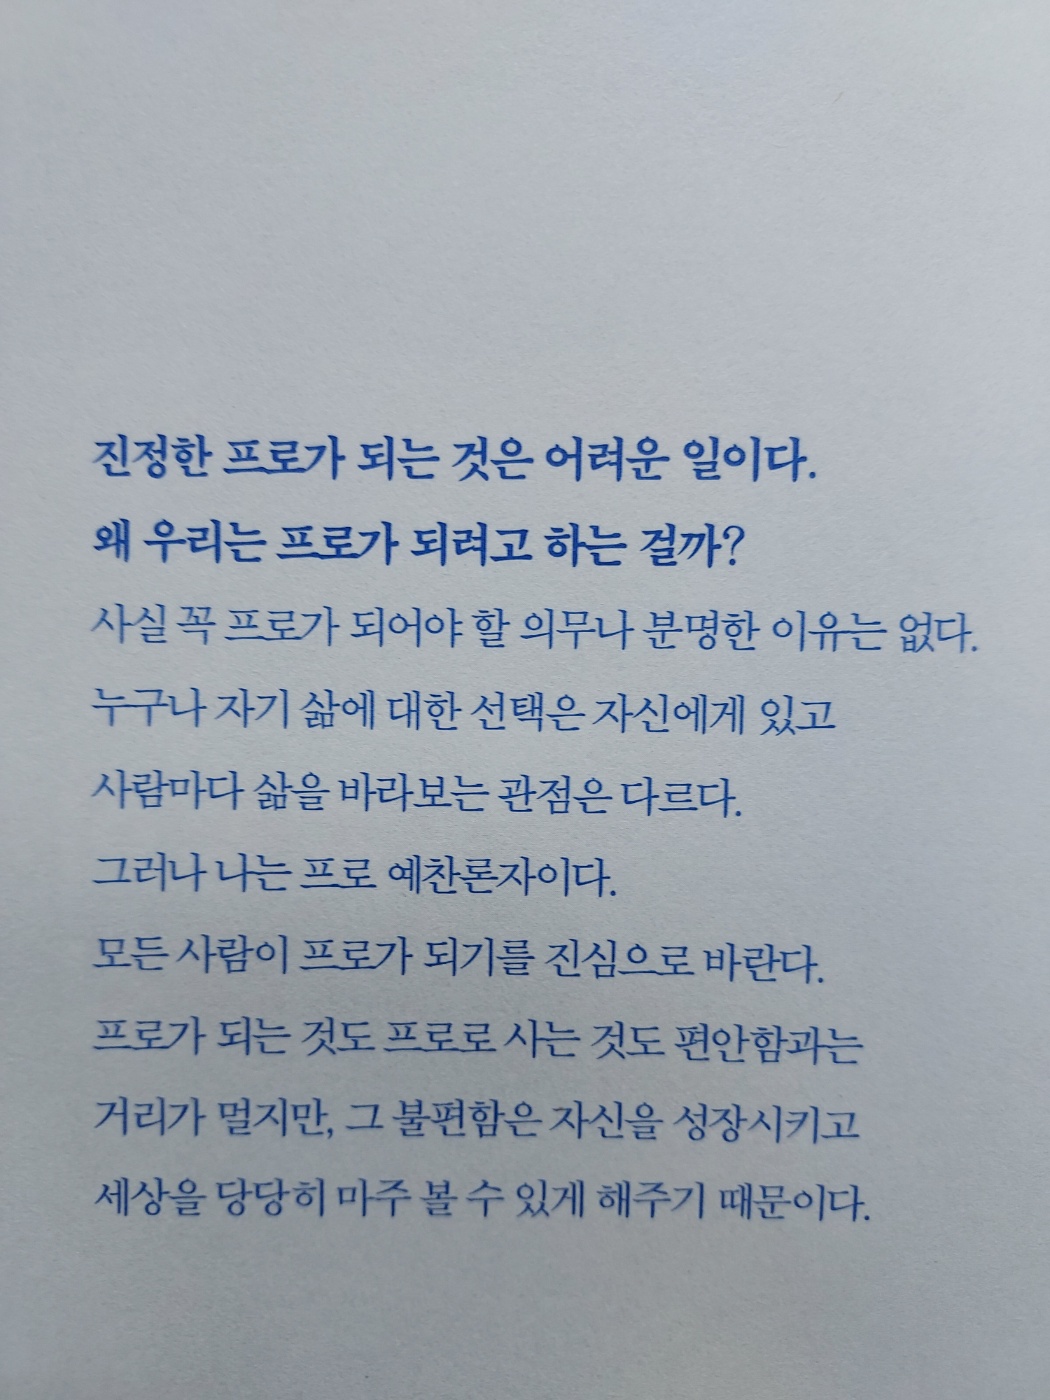 진정한 프로가 되는 것은 어려운 일이다.
왜 우리는 프로가 되려고 하는 걸까?
사실 꼭 프로가 되어야 할 의무나 분명한 이유는 없다.
누구나 자기 삶에 대한 선택은 자신에게 있고
사람마다 삶을 바라보는 관점은 다르다.
그러나 나는 프로 예찬론자이다.
모든 사람이 프로가 되기를 진심으로 바란다.
프로가 되는 것도 프로로 사는 것도 편안함과는
거리가 멀지만, 그 불편함은 자신을 성장시키고
세상을 당당히 마주 볼 수 있게 해주기 때문이다.